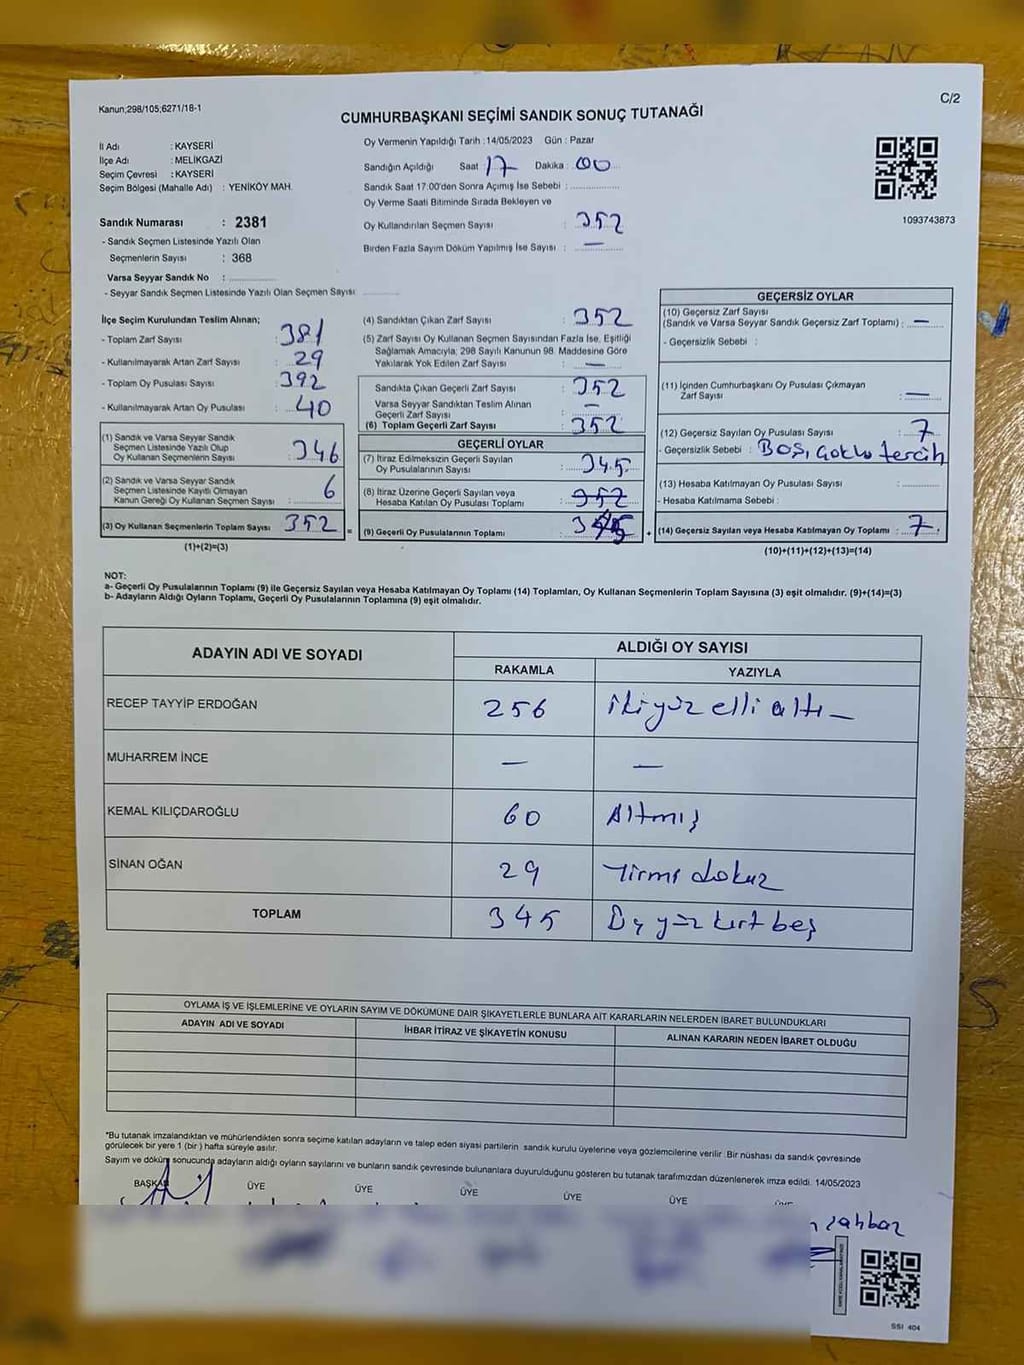 Kanun;298/105;6271/18-1
C/2
CUMHURBAŞKANI SEÇİMİ SANDIK SONUÇ TUTANAĞI
İl Adı : KAYSERİ
İlçe Adı : MELİKGAZİ
Seçim Çevresi : KAYSERİ
Seçim Bölgesi (Mahalle Adı) : YENİKÖY MAH.
Sandık Numarası : 2381
- Sandık Seçmen Listesinde Yazılı Olan
Seçmenlerin Sayısı : 368
Varsa Seyyar Sandık No :
- Seyyar Sandık Seçmen Listesinde Yazılı Olan Seçmen Sayısı
Oy Vermenin Yapıldığı Tarih :14/05/2023 Gün : Pazar
Sandığın Açıldığı Saat 17 Dakika : 00
Sandık Saat 17:00'den Sonra Açımış İse Sebebi :
Oy Verme Saati Bitiminde Sırada Bekleyen ve
Oy Kullandırılan Seçmen Sayısı : 352
Birden Fazla Sayım Döküm Yapılmış İse Sayısı : —
1093743873
İlçe Seçim Kurulundan Teslim Alınan;
- Toplam Zarf Sayısı : 381
- Kullanılmayarak Artan Zarf Sayısı : 29
- Toplam Oy Pusulası Sayısı : 392
- Kullanılmayarak Artan Oy Pusulası : 40
(1) Sandık ve Varsa Seyyar Sandık
Seçmen Listesinde Yazılı Olup
Oy Kullanan Seçmenlerin Sayısı : 346
(2) Sandık ve Varsa Seyyar Sandık
Seçmen Listesinde Kayıtlı Olmayan
Kanun Gereği Oy Kullanan Seçmen Sayısı : 6
(3) Oy Kullanan Seçmenlerin Toplam Sayısı : 352 =
(1)+(2)=(3)
(4) Sandıktan Çıkan Zarf Sayısı : 352
(5) Zarf Sayısı Oy Kullanan Seçmen Sayısından Fazla İse, Eşitliği
Sağlamak Amacıyla; 298 Sayılı Kanunun 98. Maddesine Göre
Yakılarak Yok Edilen Zarf Sayısı : —
Sandıkta Çıkan Geçerli Zarf Sayısı : 352
Varsa Seyyar Sandıktan Teslim Alınan
Geçerli Zarf Sayısı : —
(6) Toplam Geçerli Zarf Sayısı : 352
GEÇERLİ OYLAR
(7) İtiraz Edilmeksizin Geçerli Sayılan
Oy Pusulalarının Sayısı : 345
(8) İtiraz Üzerine Geçerli Sayılan veya
Hesaba Katılan Oy Pusulaları Toplamı : 352
(9) Geçerli Oy Pusulalarının Toplamı : +
GEÇERSİZ OYLAR
(10) Geçersiz Zarf Sayısı
(Sandık ve Varsa Seyyar Sandık Geçersiz Zarf Toplamı) : —
- Geçersizlik Sebebi :
(11) İçinden Cumhurbaşkanı Oy Pusulası Çıkmayan
Zarf Sayısı : —
(12) Geçersiz Sayılan Oy Pusulası Sayısı : 7
- Geçersizlik Sebebi : Boş, çoklu tercih
(13) Hesaba Katılmayan Oy Pusulası Sayısı :
- Hesaba Katılmama Sebebi :
(14) Geçersiz Sayılan veya Hesaba Katılmayan Oy Toplamı : 7
(10)+(11)+(12)+(13)=(14)
NOT:
a- Geçerli Oy Pusulalarının Toplamı (9) ile Geçersiz Sayılan veya Hesaba Katılmayan Oy Toplamı (14) Toplamları, Oy Kullanan Seçmenlerin Toplam Sayısına (3) eşit olmalıdır. (9)+(14)=(3)
b- Adayların Aldığı Oyların Toplamı, Geçerli Oy Pusulalarının Toplamına (9) eşit olmalıdır.
ADAYIN ADI VE SOYADI
ALDIĞI OY SAYISI
RAKAMLA YAZIYLA
RECEP TAYYİP ERDOĞAN 256 ikiyüz elli altı —
MUHARREM İNCE — —
KEMAL KILIÇDAROĞLU 60 Altmış
SİNAN OĞAN 29 Yirmi dokuz
TOPLAM 345 Üç yüz kırt beş
OYLAMA İŞ VE İŞLEMLERİNE VE OYLARIN SAYIM VE DÖKÜMÜNE DAİR ŞİKAYETLERLE BUNLARA AİT KARARLARIN NELERDEN İBARET BULUNDUKLARI
ADAYIN ADI VE SOYADI İHBAR İTİRAZ VE ŞİKAYETİN KONUSU ALINAN KARARIN NEDEN İBARET OLDUĞU
*Bu tutanak imzalandıktan ve mühürlendikten sonra seçime katılan adayların ve talep eden siyasi partilerin sandık kurulu üyelerine veya gözlemcilerine verilir. Bir nüshası da sandık çevresinde
görülecek bir yere 1 (bir) hafta süreyle asılır.
Sayım ve döküm sonucunda adayların aldığı oyların sayılarını ve bunların sandık çevresinde bulunanlara duyurulduğunu gösteren bu tutanak tarafımızdan düzenlenerek imza edildi. 14/05/2023
BAŞKAN ÜYE ÜYE ÜYE ÜYE ÜYE
SSI 404